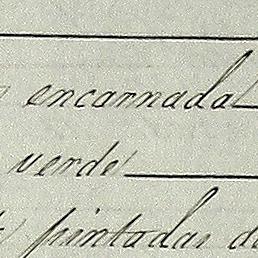 encarnada
verde
pintadas d